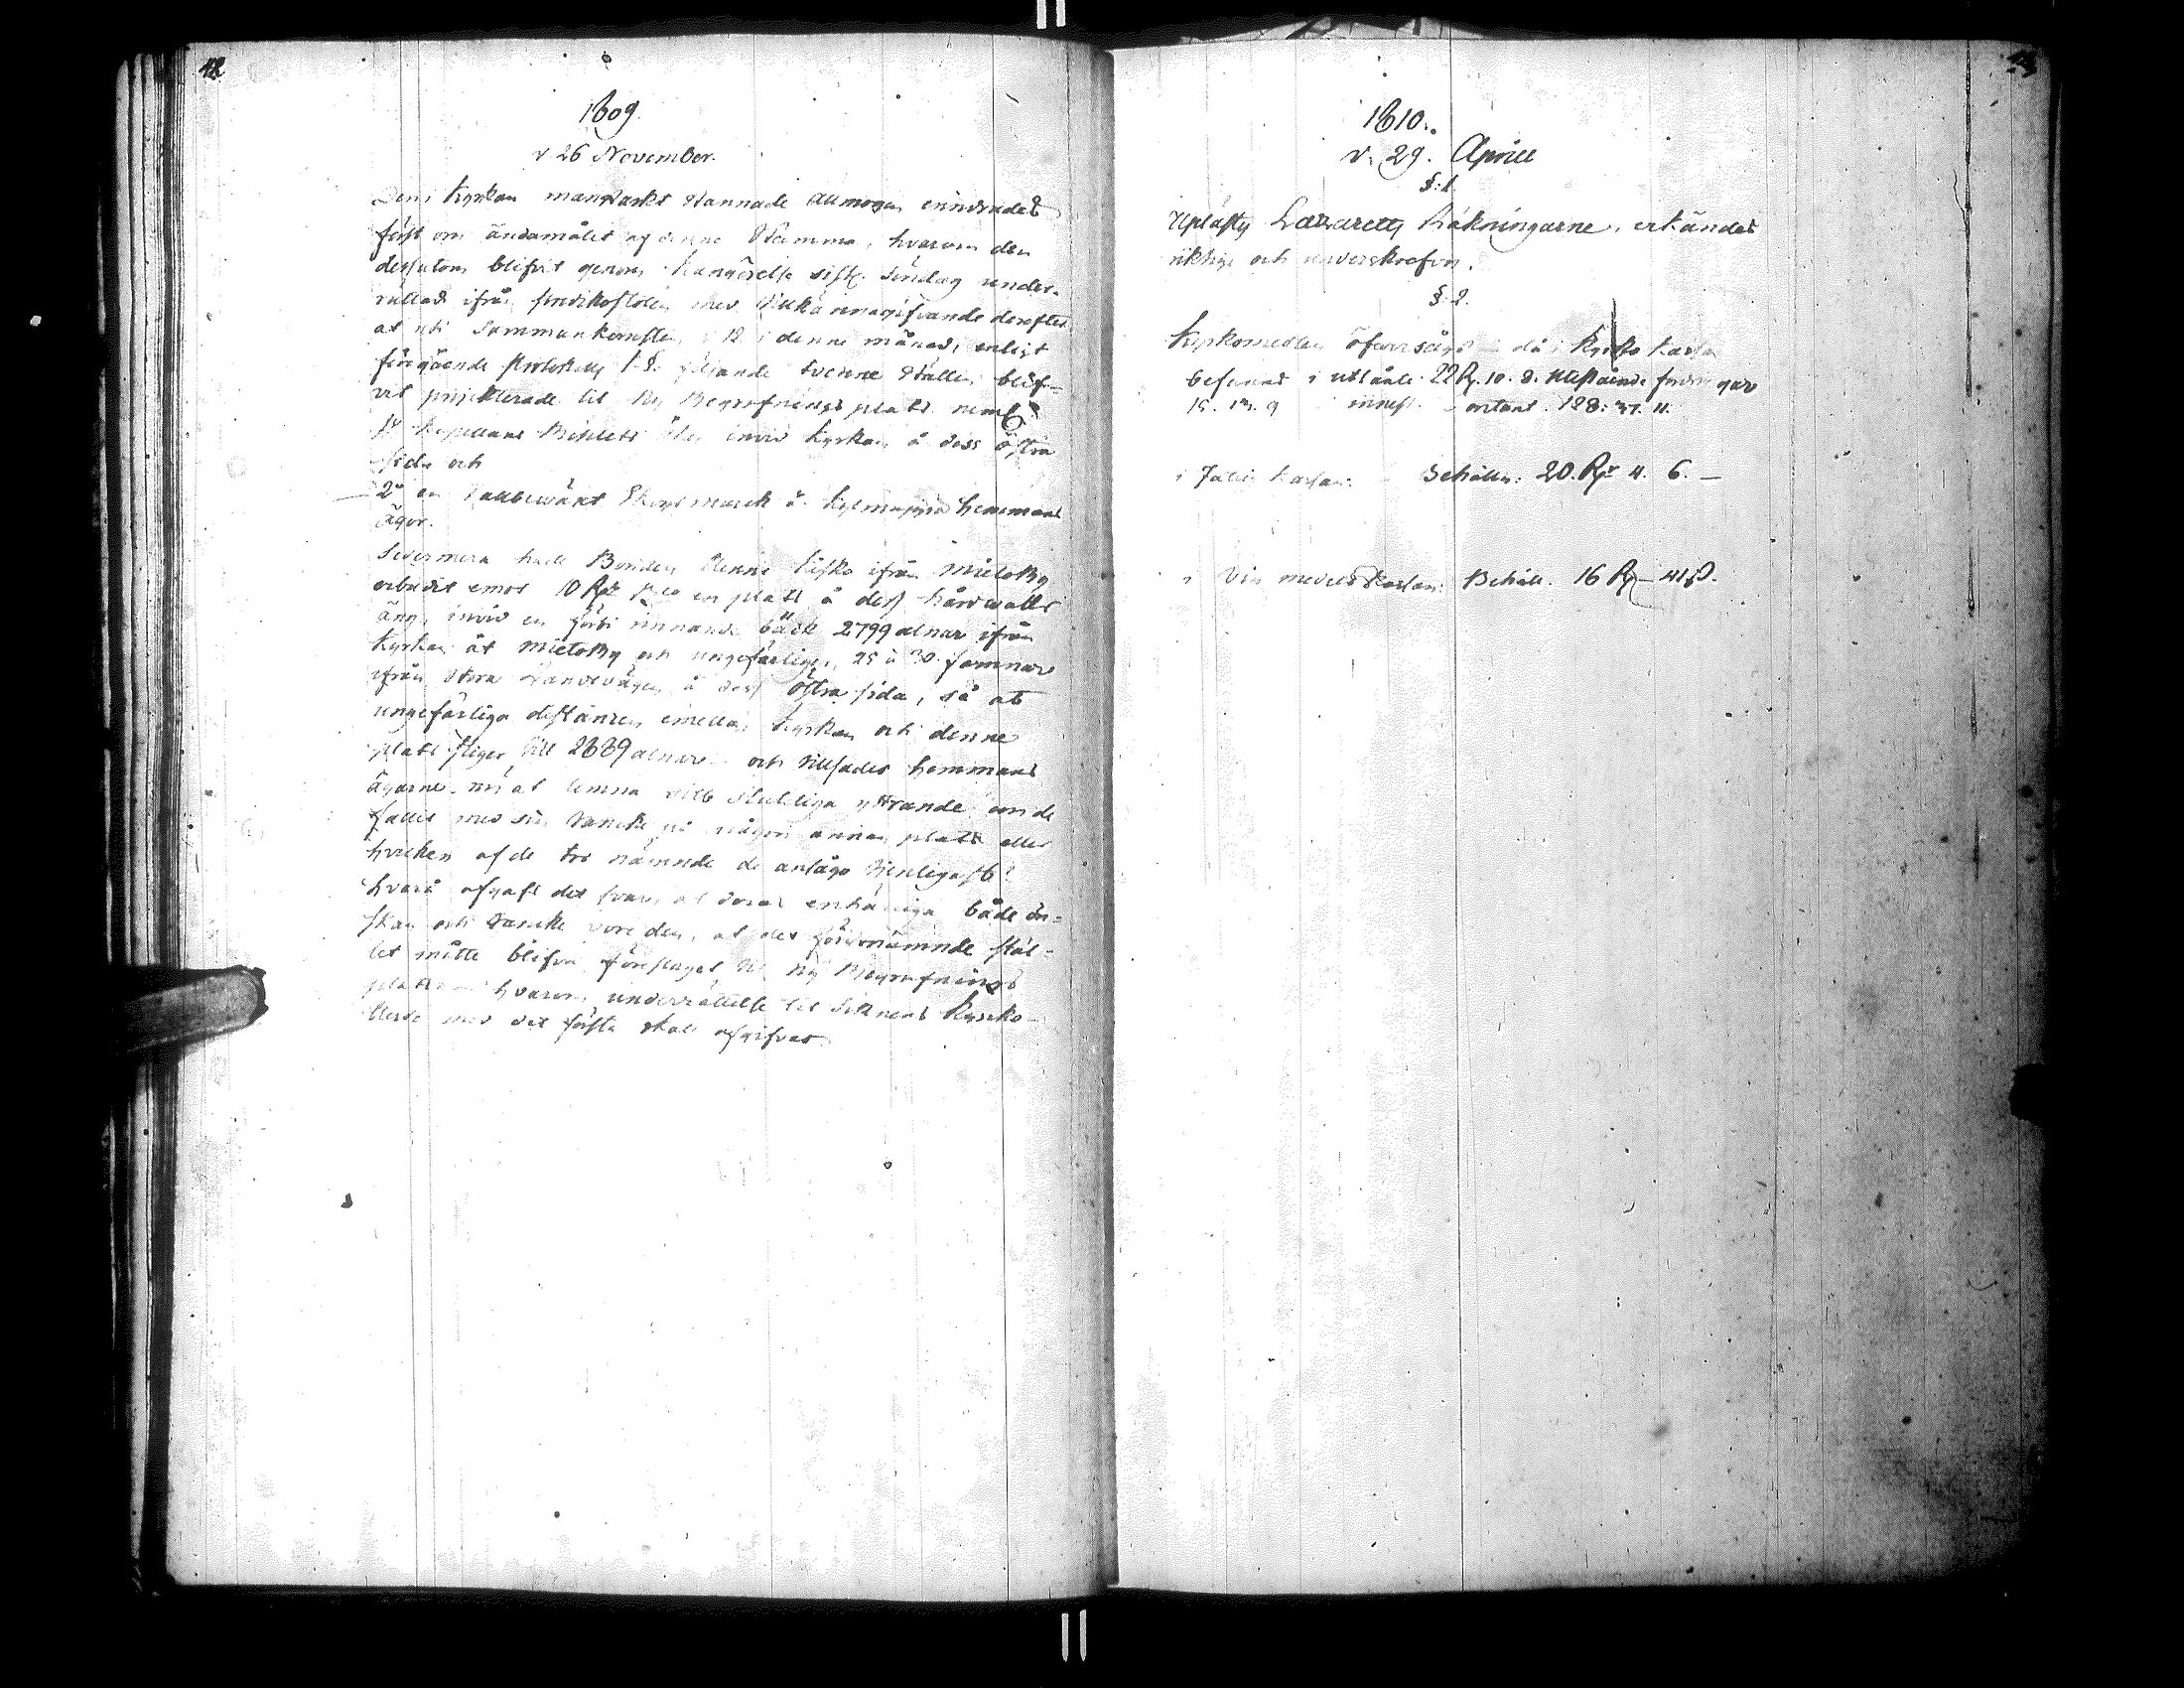 42
1809.
d 26 November.
Den i Kyrkan manstarkt stannade Allmogen erinrades
först om ändamålet af denne Stämma, hvarom den
dessutom blifvit genom Kungörelse sistl. Söndag under-
rättad ifrån predikostolen med tillkännagifvande derefter
at uti Sammankomsten d 12 i denne månad, enligt
föregående Protokolls 1 §. följande tvenne ställen blif-
vit projekterade til Ny Begrafnings plats neml.
invid Kyrkan å dess östra
sida och
2o en Skogs marck å hemmans
ägor.
Sedermera hade Bonden ifrån Mietoby
erbudit emot 10 Rd en plats å dess hårdvalls
äng, invid en förbi rinnande bäck 2799 alnar ifrån
Kyrkan åt Mietoby och ungefärligen 25 à 30 famnar
ifrån stora Landsvägen å dess östra sida, så at
ungefärliga distancen emellan Kyrkan och denne
plats stiger till 2889 alnar och tillsades hemmans
ägarne nu at lemna sitt slutliga yttrande om de
fallit med sin tancke på någon annan plats eller
hvilken af de tre nämnde de ansågo tjenligast?
hvarå afgafs det svar, at deras enhälliga både ön-
skan och tancke vore den, at det förstnämnde stäl-
let måtte blifva föreslaget til ny Begrafnings
plats hvarom underrättelse til Socknens Kyrko-
herde med det första skall afgifvas
1810.
d. 29. Aprill
§. 1.
Uplästes Lazaretts Räkningarne, erkändes
riktige och underskrefvos.
§. 2.
Kyrkomedlen öfversågs då i Kyrko Kassan
befanns i utlånte 22 Rd. 10. 8. Utestående fordringar
15. 13. 9 contant. 128: 37. 11.
i Kassan: Behålln: 20. Rd 4. 6. —
i Vin medels Kassan: Behåll. 16 Rd — 41 ß.